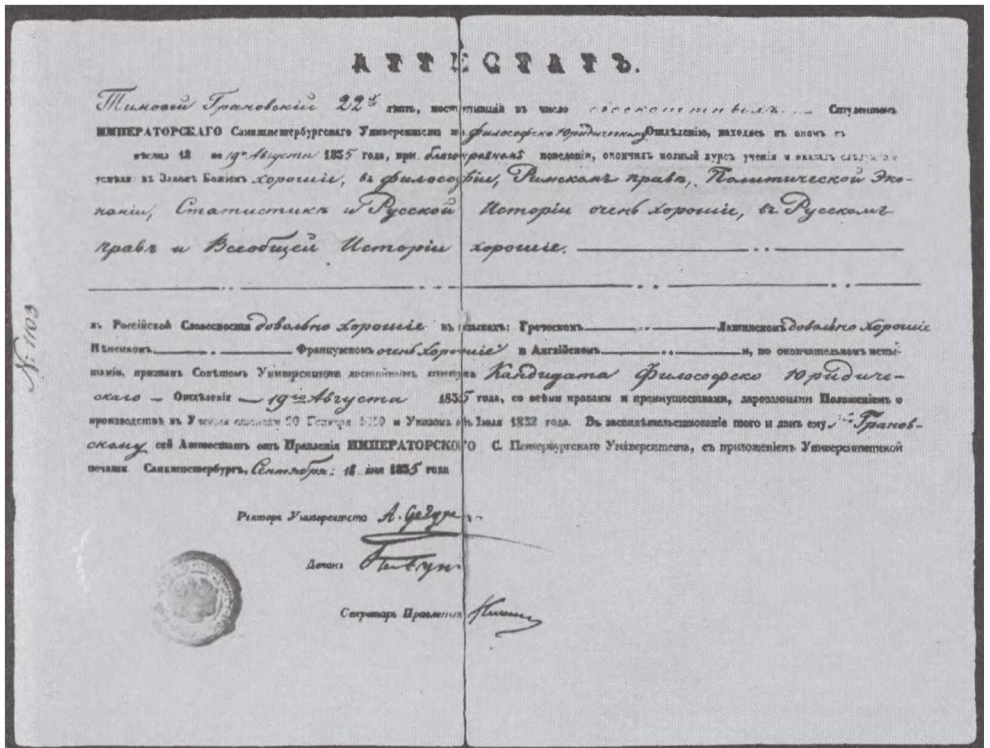 АТТЕСТАТЪ.
Тимофей Грановскій 22х лѣтъ, поступившій въ число Студентовъ
ИМПЕРАТОРСКАГО Санктпетербургскаго Университета по Философско Юридическому Отдѣленію, находясь въ ономъ съ
мѣсяца 18 по 19е Августа 1835 года, при благонравномъ поведеніи, окончилъ полный курсъ ученія и оказалъ
успѣхи: въ Законѣ Божіемъ хорошіе, въ философіи, Римскомъ правѣ, Политической Эко-
номіи, Статистикѣ и Русской Исторіи очень хорошіе, въ Русскомъ
правѣ и Всеобщей Исторіи хорошіе.
№ 1103
въ Россійской Словесности довольно хорошіе въ языкахъ: Греческомъ Латинскомъ довольно хорошіе
Нѣмецкомъ Французскомъ очень хорошіе и Англійскомъ и, по окончательномъ испы-
таніи, признанъ Совѣтомъ Университета достойнымъ степени Кандидата Философско Юридиче-
скаго Отдѣленія 19го Августа 1835 года, со всѣми правами и преимуществами, дарованными Положеніемъ о
производствѣ въ Ученыя степени 20 Генваря и Указомъ Іюля 1832 года. Въ засвидѣтельствованіе того и данъ ему Гранов-
скому сей Аттестатъ отъ Правленія ИМПЕРАТОРСКАГО С. Петербургскаго Университета, съ приложеніемъ Университетской
печати Санктпетербургъ, Сентября: 18 дня 1835 года
Ректоръ Университета А.
Деканъ
Секретарь Правленія